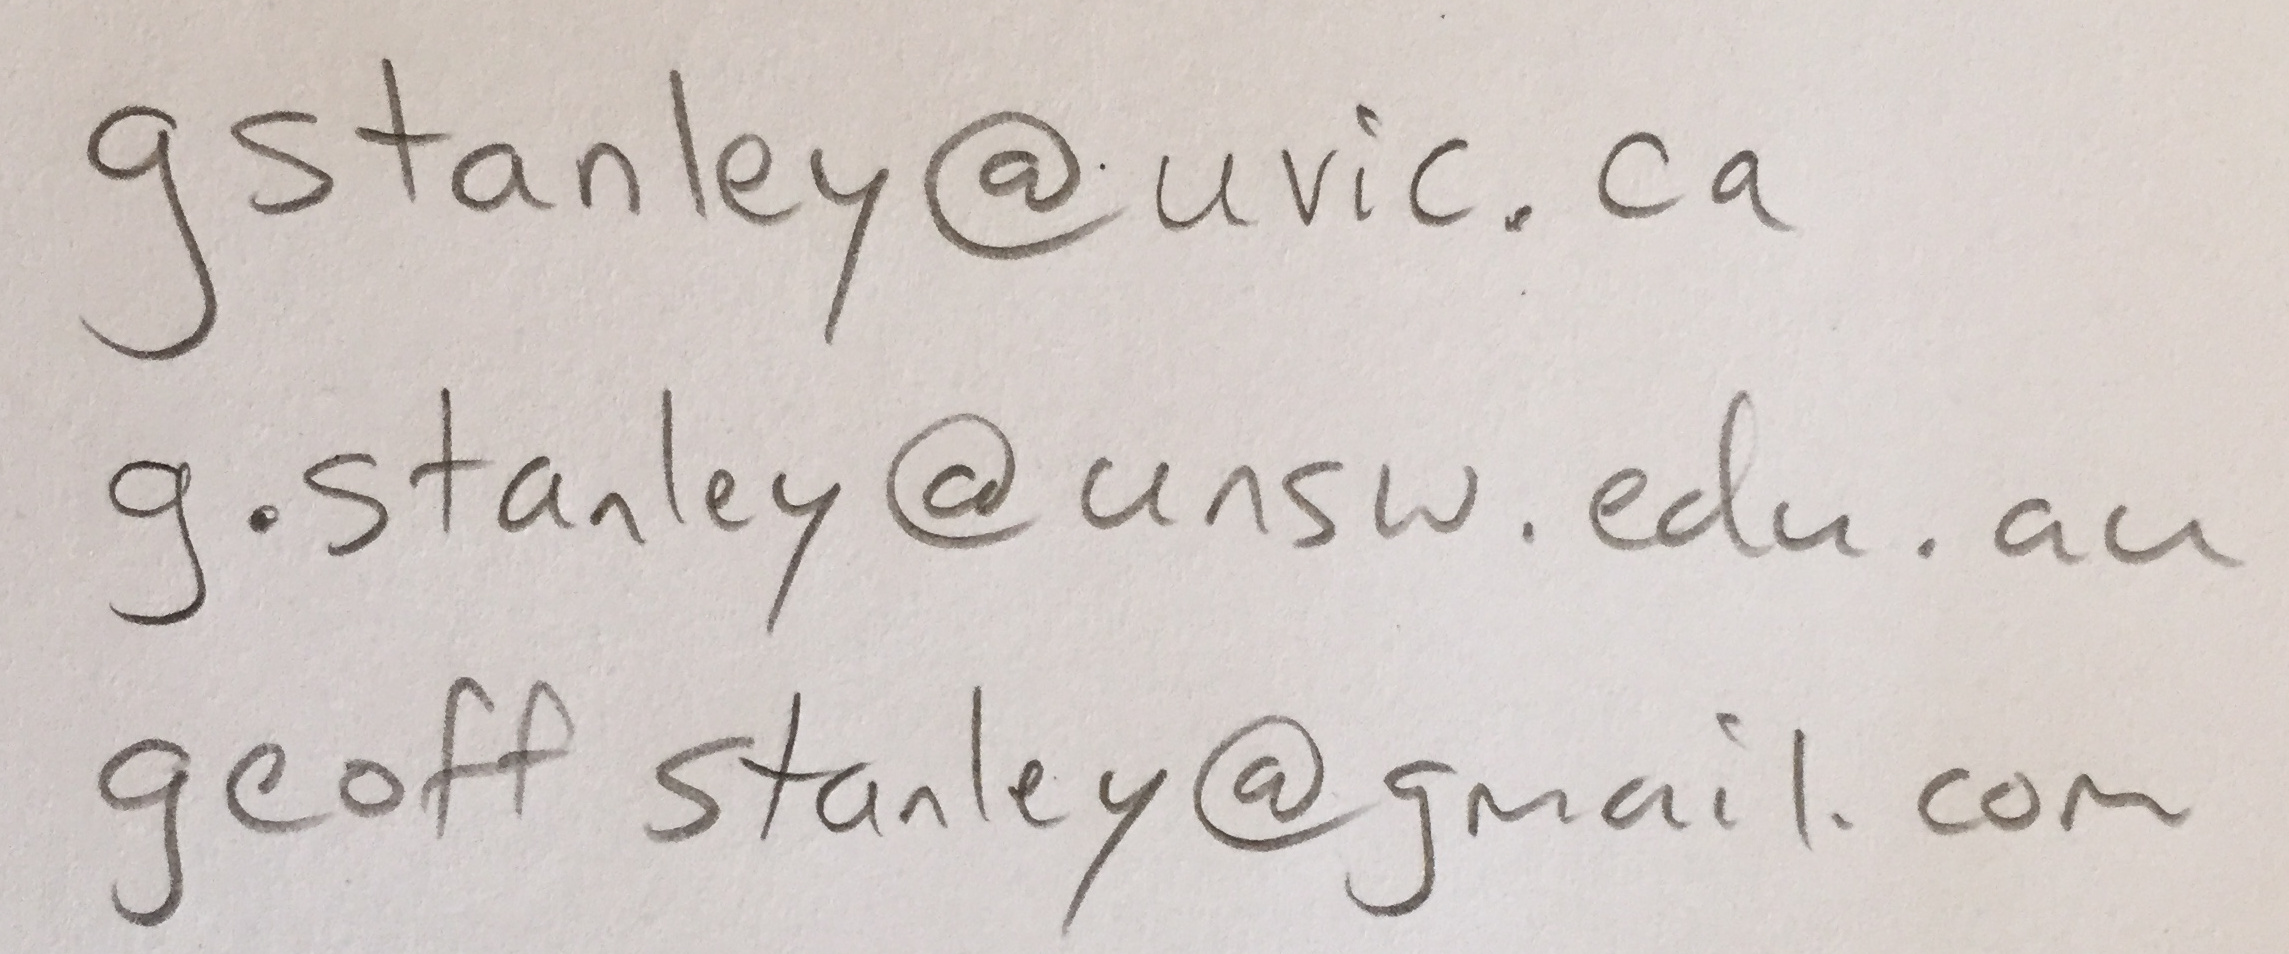 gstanley@uvic.ca
g.stanley@unsw.edu.au
geoffstanley@gmail.com